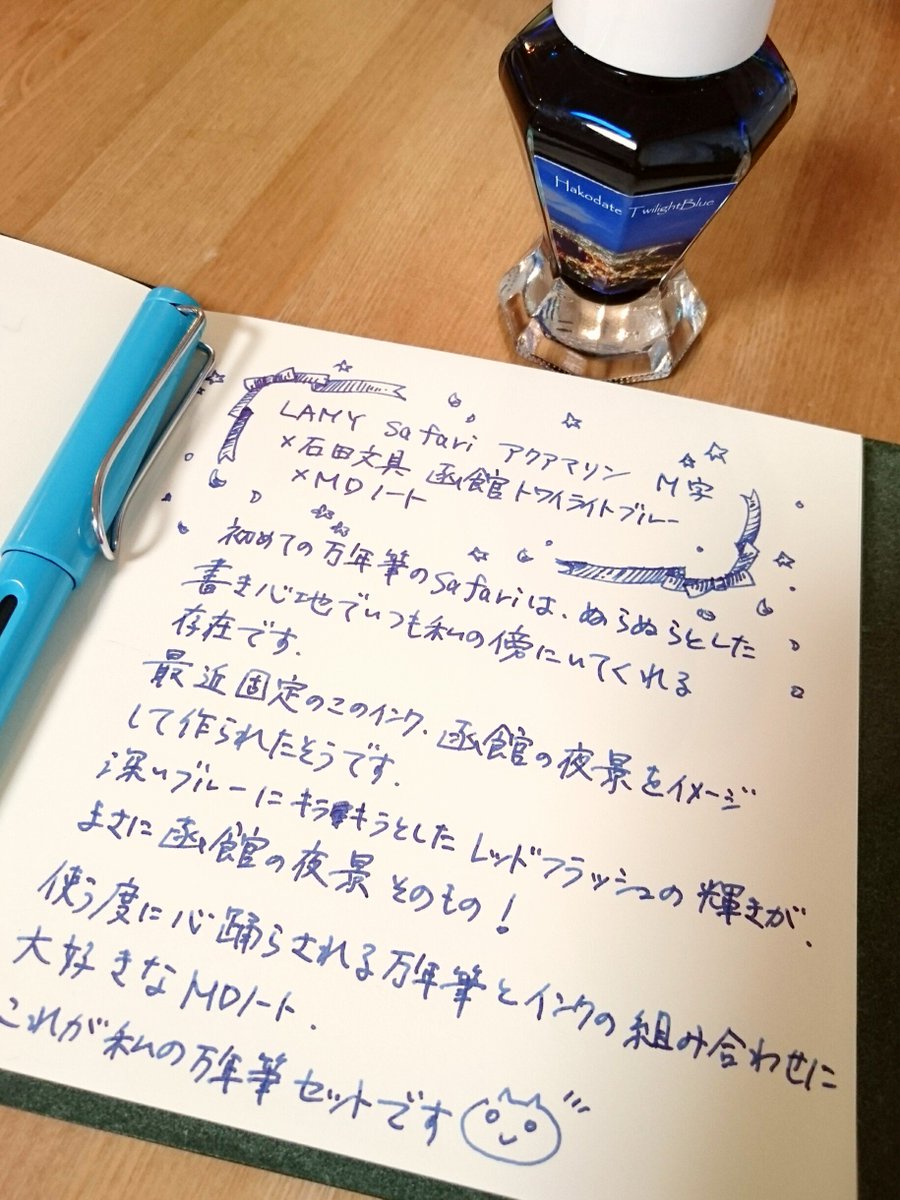 Hakodate TwilightBlue
LAMY safari アクアマリン M字
×石田文具 函館トワイライトブルー
×MDノート
初めての万年筆のsafariは、ぬらぬらとした
書き心地でいつも私の傍にいてくれる
存在です.
最近固定のこのインク、函館の夜景をイメージ
して作られたそうです.
深いブルーにキラキラとしたレッドフラッシュの輝きが、
まさに函館の夜景そのもの!
使う度に心踊らされる万年筆とインクの組み合わせに
大好きなMDノート.
これが私の万年筆セットです